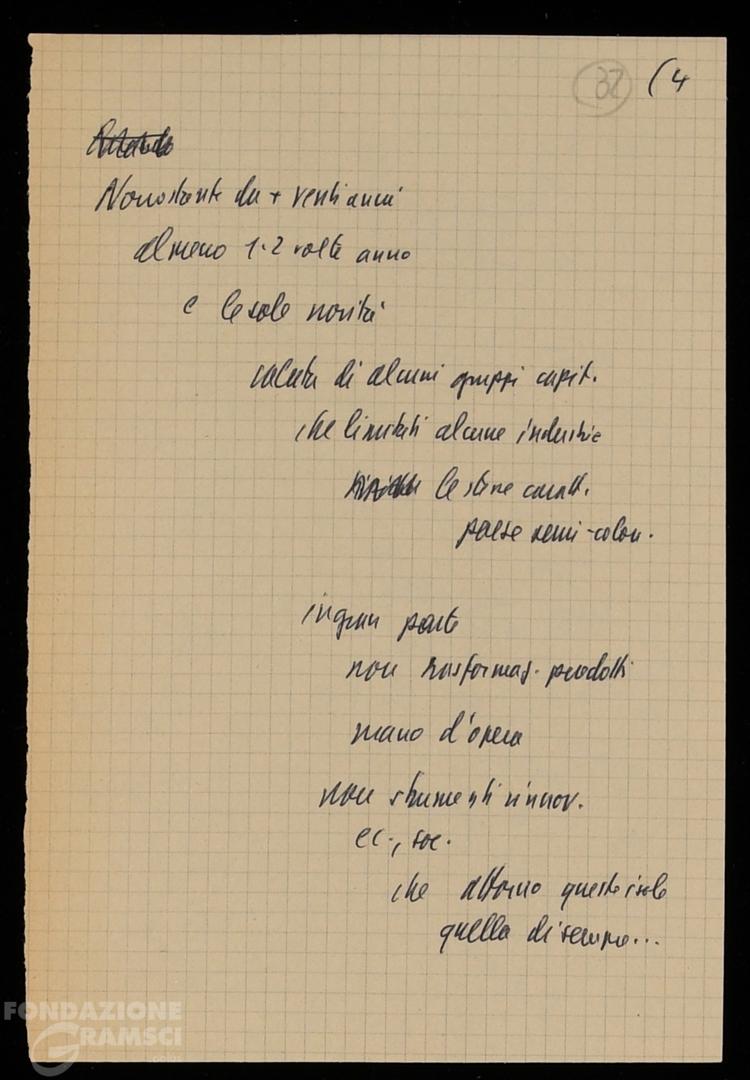 32 (4
Nonostante da + venti anni
almeno 1-2 volte anno
e le sole novità
calata di alcuni gruppi capit.
che limitati alcune industrie
le stesse caratt.
paese semi-colon.
in gran parte
non trasformaz. prodotti
mano d'opera
non strumenti rinnov.
ec., soc.
che attorno queste isole
quella di sempre...
FONDAZIONE
GRAMSCI